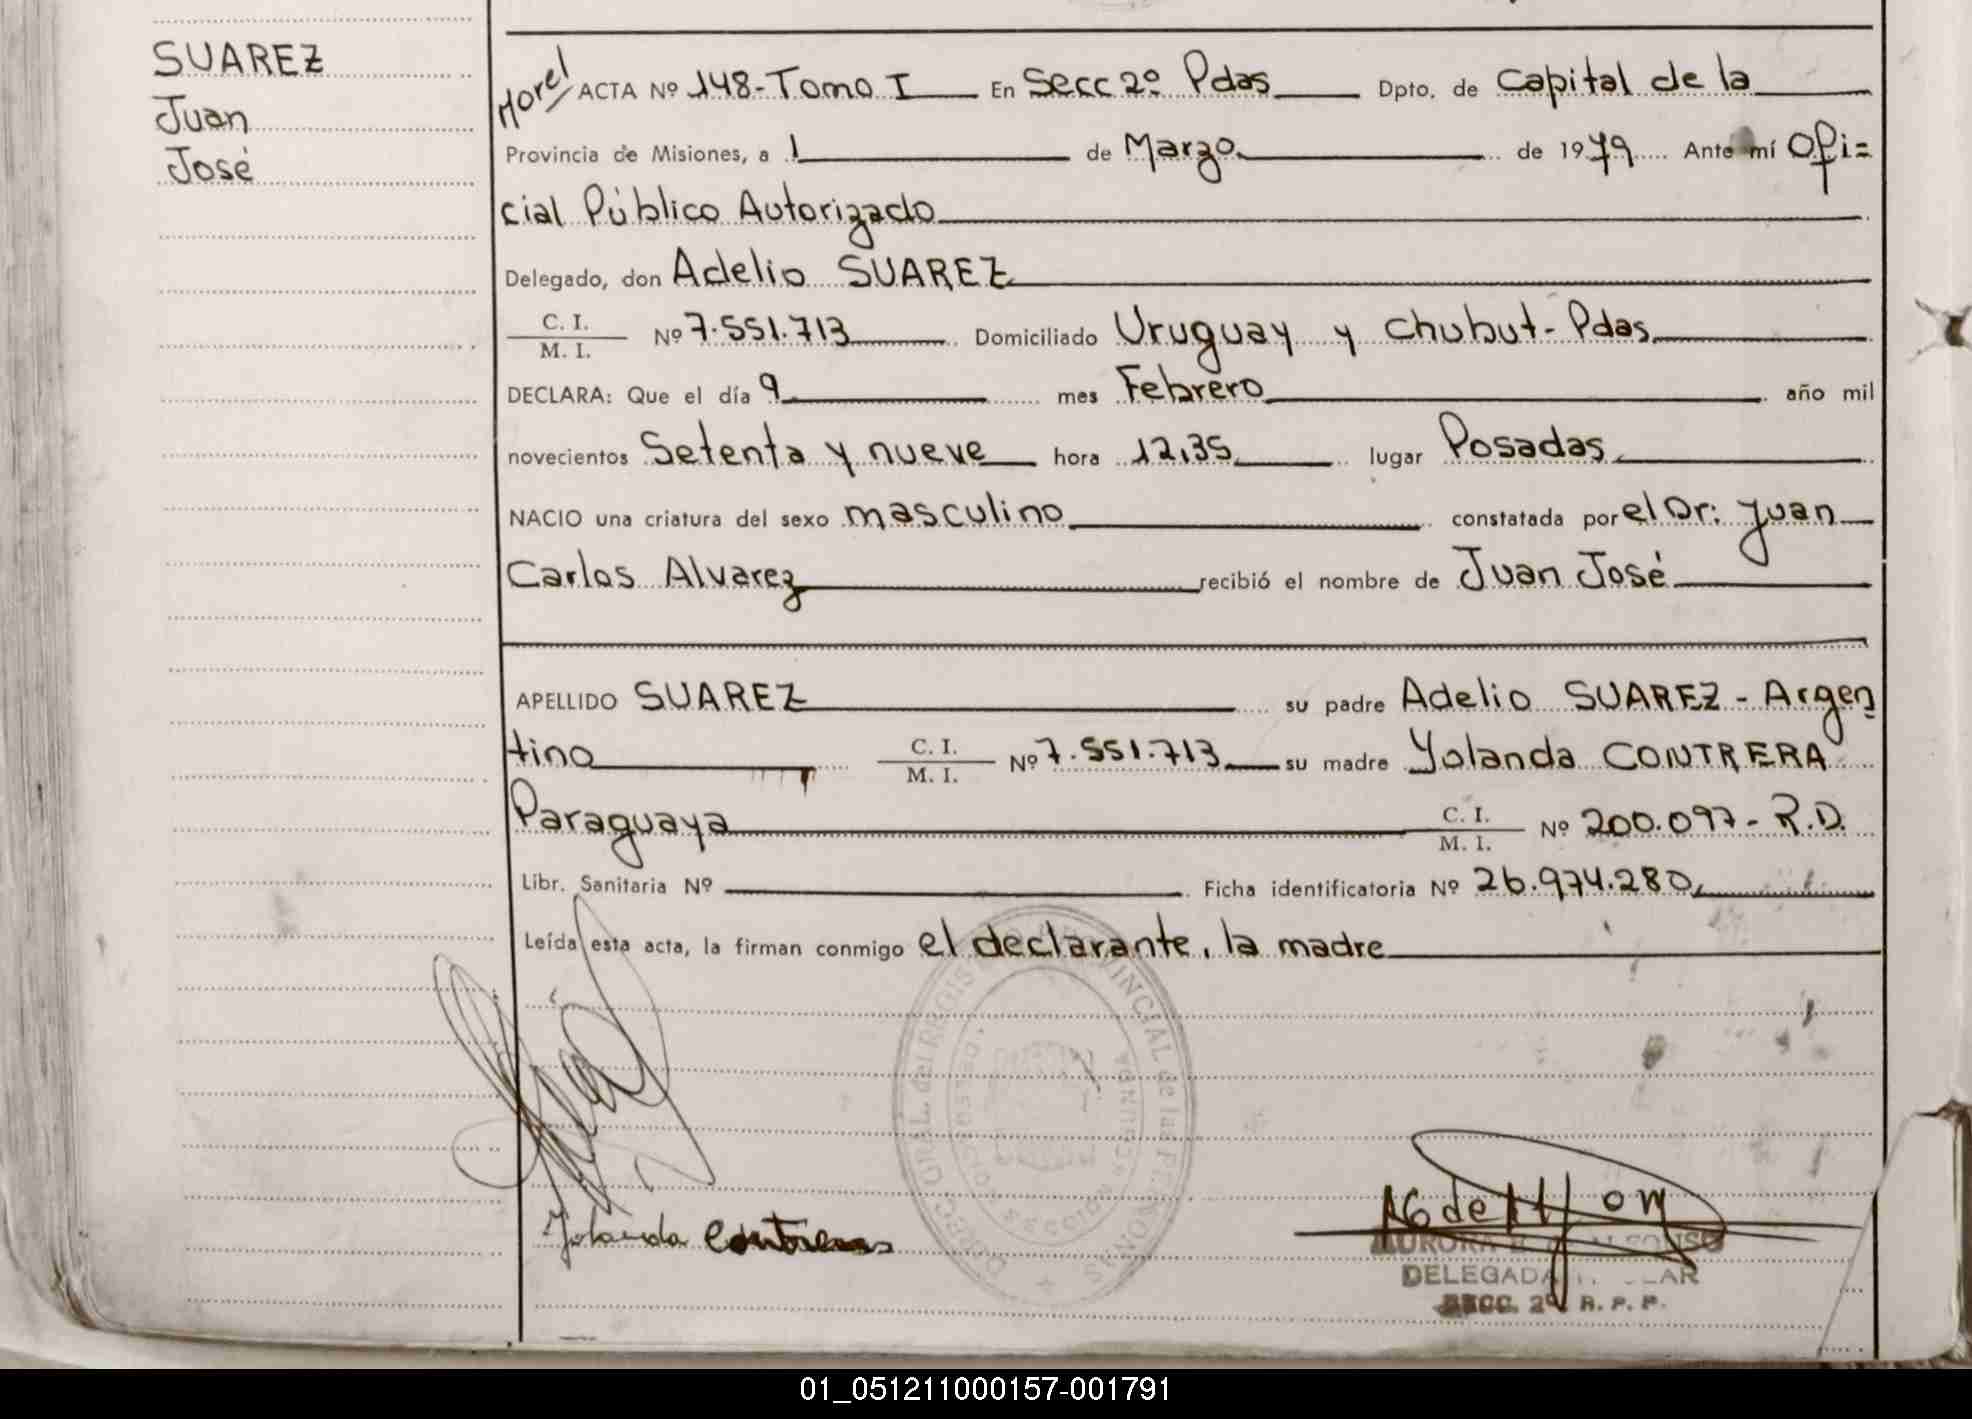 SUAREZ
Juan
José
Morel ACTA Nº 148-Tomo I En Secc 2º Pdas Dpto. de Capital de la
Provincia de Misiones, a 1 de Marzo de 1979 Ante mí Ofi=
cial Público Autorizado
Delegado, don Adelio SUAREZ
C. I.
M. I. Nº 7.551.713 Domiciliado Uruguay y Chubut-Pdas
DECLARA: Que el día 9 mes Febrero año mil
novecientos Setenta y nueve hora 12,35 lugar Posadas
NACIO una criatura del sexo masculino constatada por el Dr: Juan
Carlos Alvarez recibió el nombre de Juan José
APELLIDO SUAREZ su padre Adelio SUAREZ - Argen
tino C. I.
M. I. Nº 7.551.713 su madre Yolanda CONTRERA
Paraguaya C. I.
M. I. Nº 200.097- R.D.
Libr. Sanitaria Nº Ficha identificatoria Nº 26.974.280
Leída esta acta, la firman conmigo el declarante, la madre
Yolanda Contreras
DELEGADA
SECC. 2º R. P. P.
01_051211000157-001791